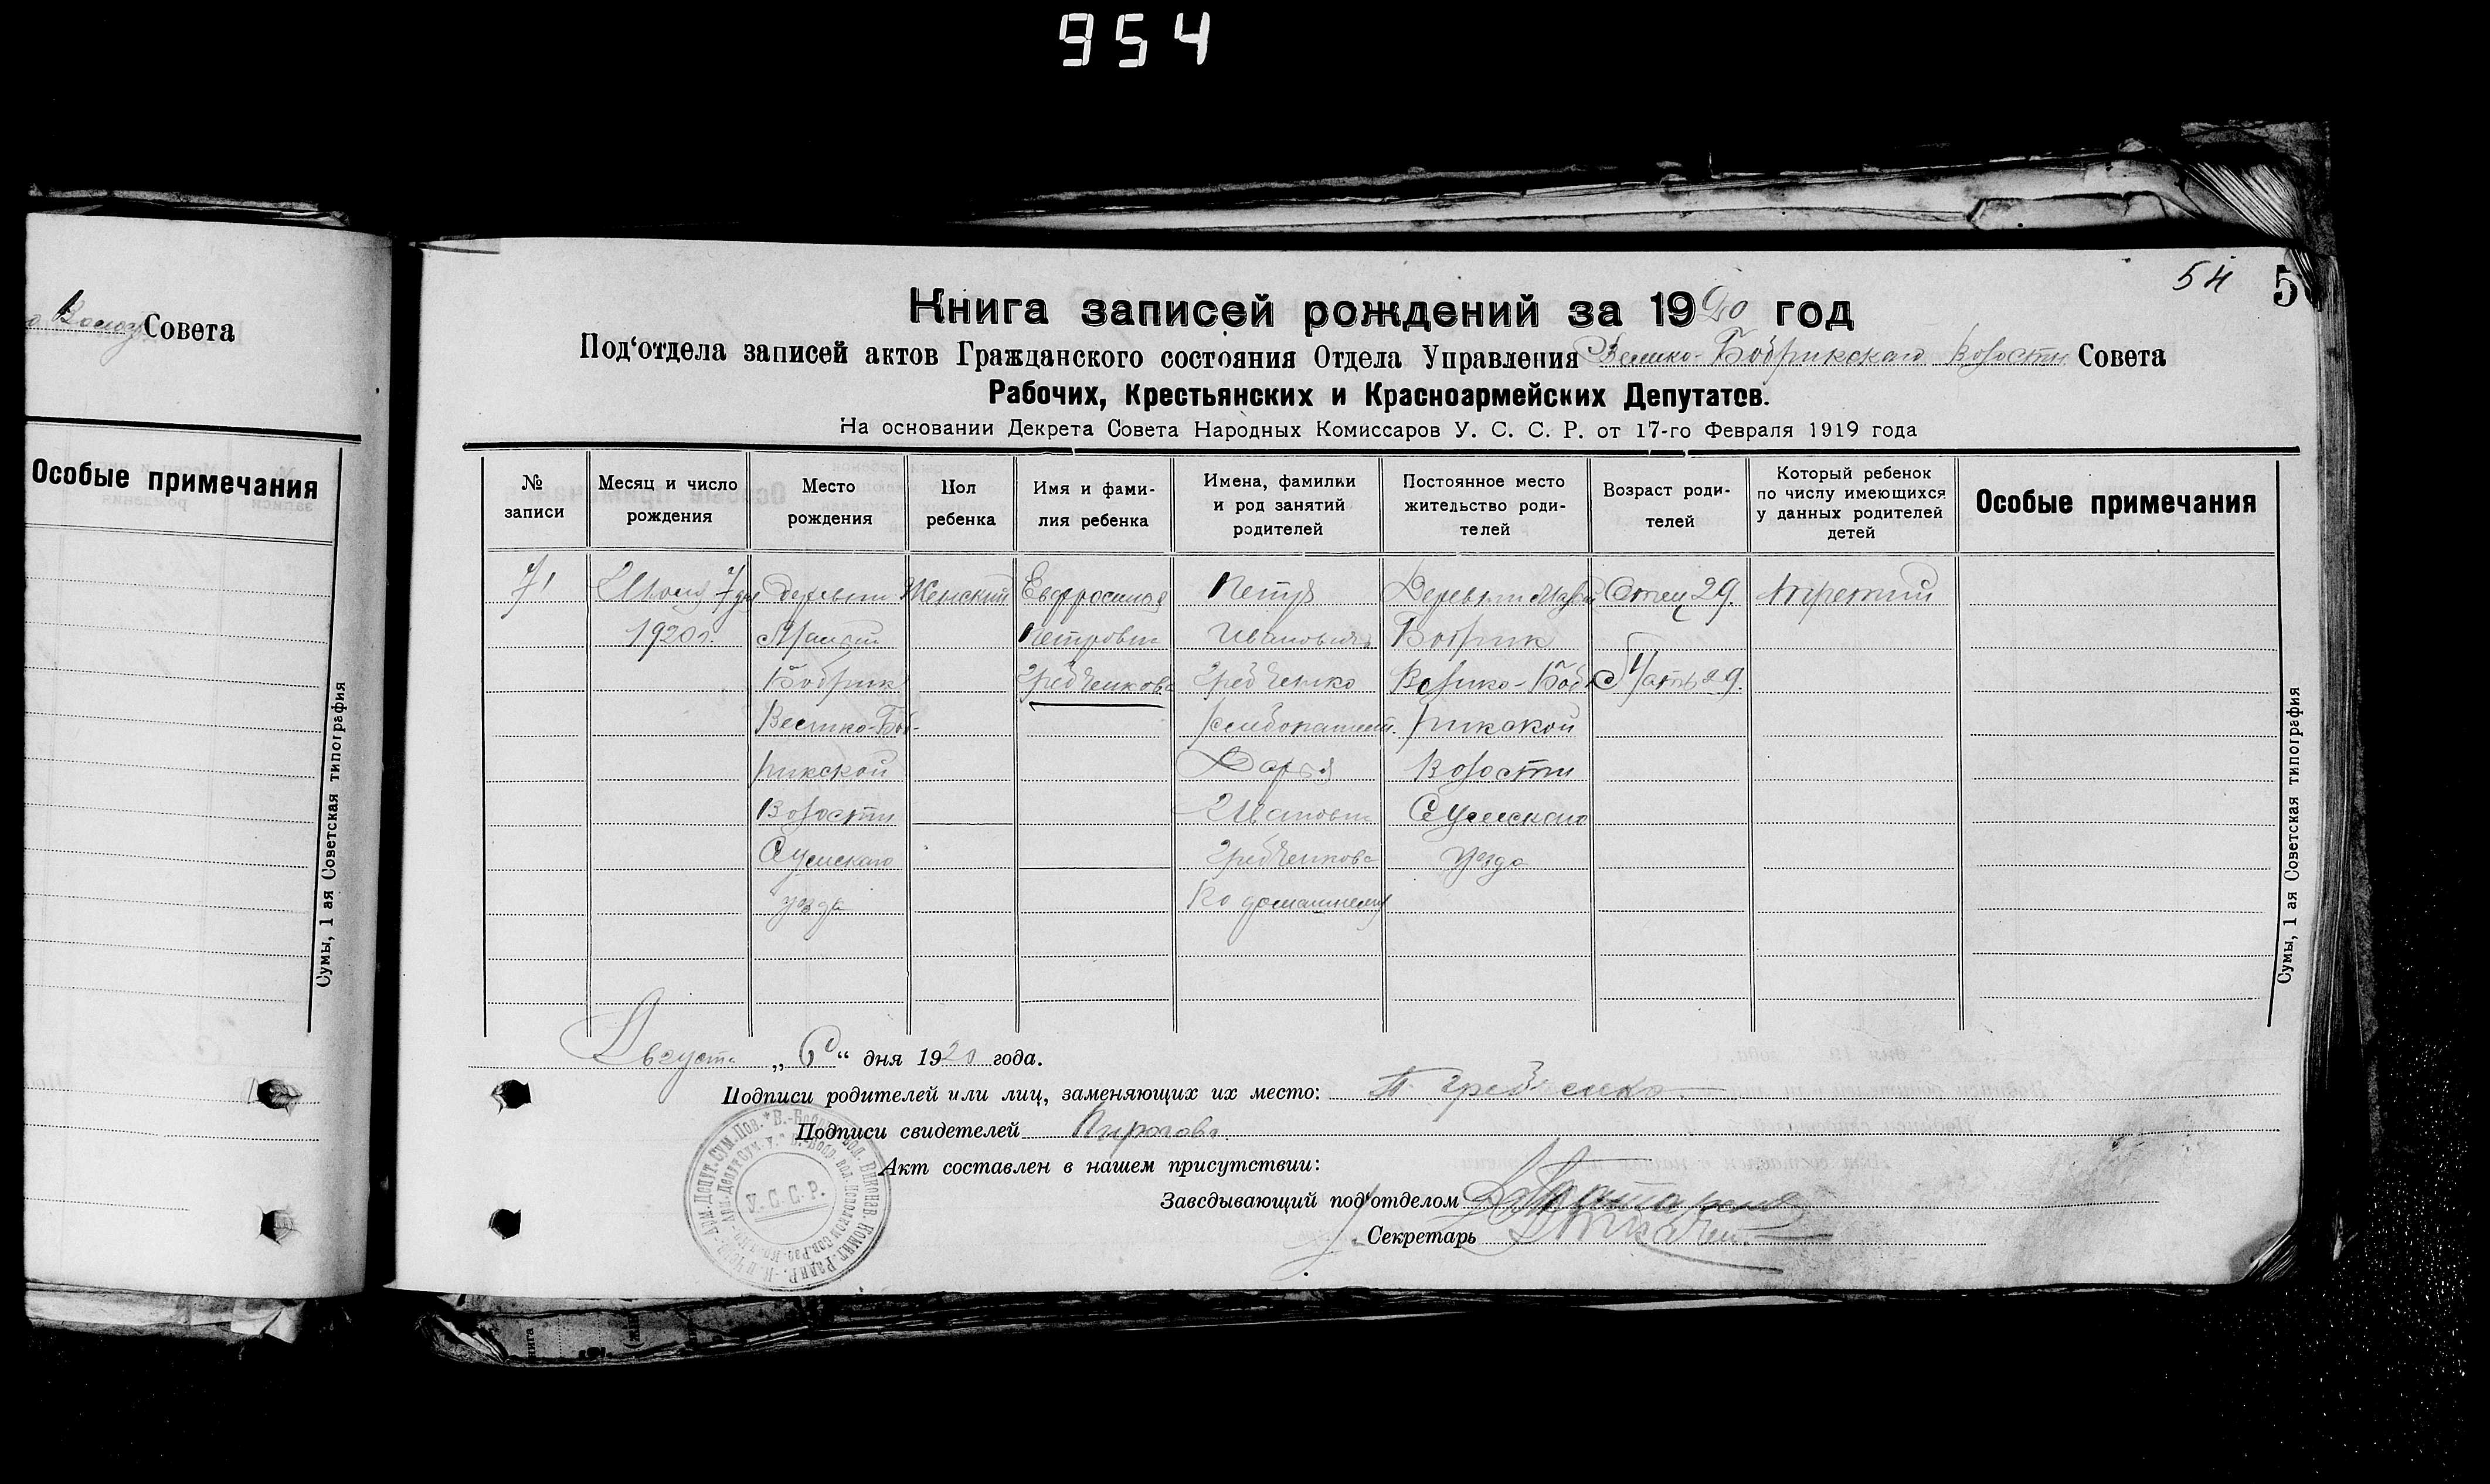 954
Совета
Особые примечания
Сумы, 1 ая Советская типография
54
5
Книга записей рождений за 1920 год
Под‘отдела записей актов Гражданского состояния Отдела Управления Велико-Бобрикского Волости Совета
Рабочих, Крестьянских и Красноармейских Депутатов.
На основании Декрета Совета Народных Комиссаров У. С. С. Р. от 17-го Февраля 1919 года
№ записи
Месяц и число
рождения
Место
рождения
Пол
ребенка
Имя и фами-
лия ребенка
Имена, фамилии
и род занятий
родителей
Постоянное место
жительство роди-
телей
Возраст роди-
телей
Который ребенок
по числу имеющихся
у данных родителей
детей
Особые примечания
71
7 дня
1920 г.
Деревни
Малый
Бобрик
Велико-Боб-
рикской
Волости
Сумскаго
уезда
Женский
Евфросиния
Петровна
Гребченкова
Петр
Иванович
Гребченко
Дарья
Ивановна
Гребченкова
По домашнему
Деревни Малый
Бобрик
Велико-Боб-
рикской
Волости
Сумскаго
уезда
Отец 29.
Мать 29.
третий
Августа „6“ дня 1920 года.
Подписи родителей или лиц, заменяющих их место: П. Гребченко
Подписи свидетелей Пирогова
Акт составлен в нашем присутствии:
Заведывающий под‘отделом
Секретарь
У.С.С.Р.
Сумы, 1 ая Советская типография